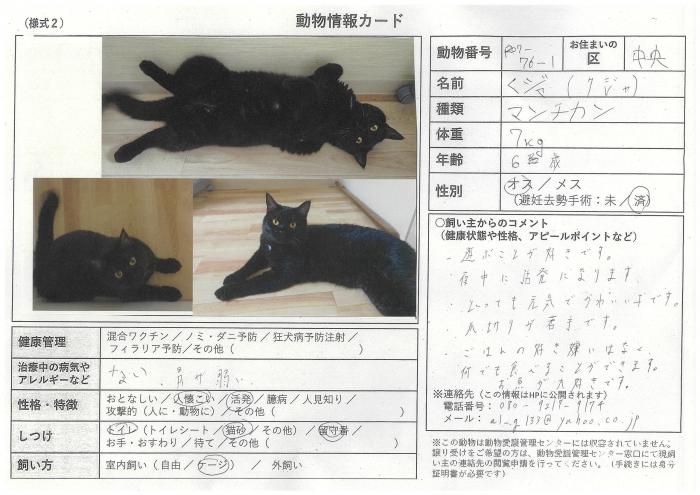 （様式２）
動物情報カード
動物番号 R07-76-1 お住まいの区 中央
名前 くジャ（クジャ）
種類 マンチカン
体重 7kg
年齢 6 歳
性別 オス／メス
（避妊去勢手術：未／済）
○飼い主からのコメント
（健康状態や性格、アピールポイントなど）
・遊ぶことが好きです。
・夜中に活発になります。
・とっても元気でかわいい子です。
・爪切りが苦手です。
・ごはんの好き嫌いはなく
何でも食べることができます。
お魚が大好きです。
※連絡先（この情報はHPに公開されます）
電話番号：080-9219-9174
メール： @yahoo.co.jp
※この動物は動物愛護管理センターには収容されていません。
譲り受けをご希望の方は、動物愛護管理センター窓口にて現飼
い主の連絡先の閲覧申請を行ってください。（手続きには身分
証明書が必要です）
健康管理 混合ワクチン／ノミ・ダニ予防／狂犬病予防注射／
フィラリア予防／その他（ ）
治療中の病気や
アレルギーなど
ない 胃が弱い
性格・特徴 おとなしい／人懐こい／活発／臆病／人見知り／
攻撃的（人に・動物に）／その他（ ）
しつけ トイレ（トイレシート／猫砂／その他）／留守番／
お手・おすわり／待て／その他（ ）
飼い方 室内飼い（自由／ケージ）／ 外飼い